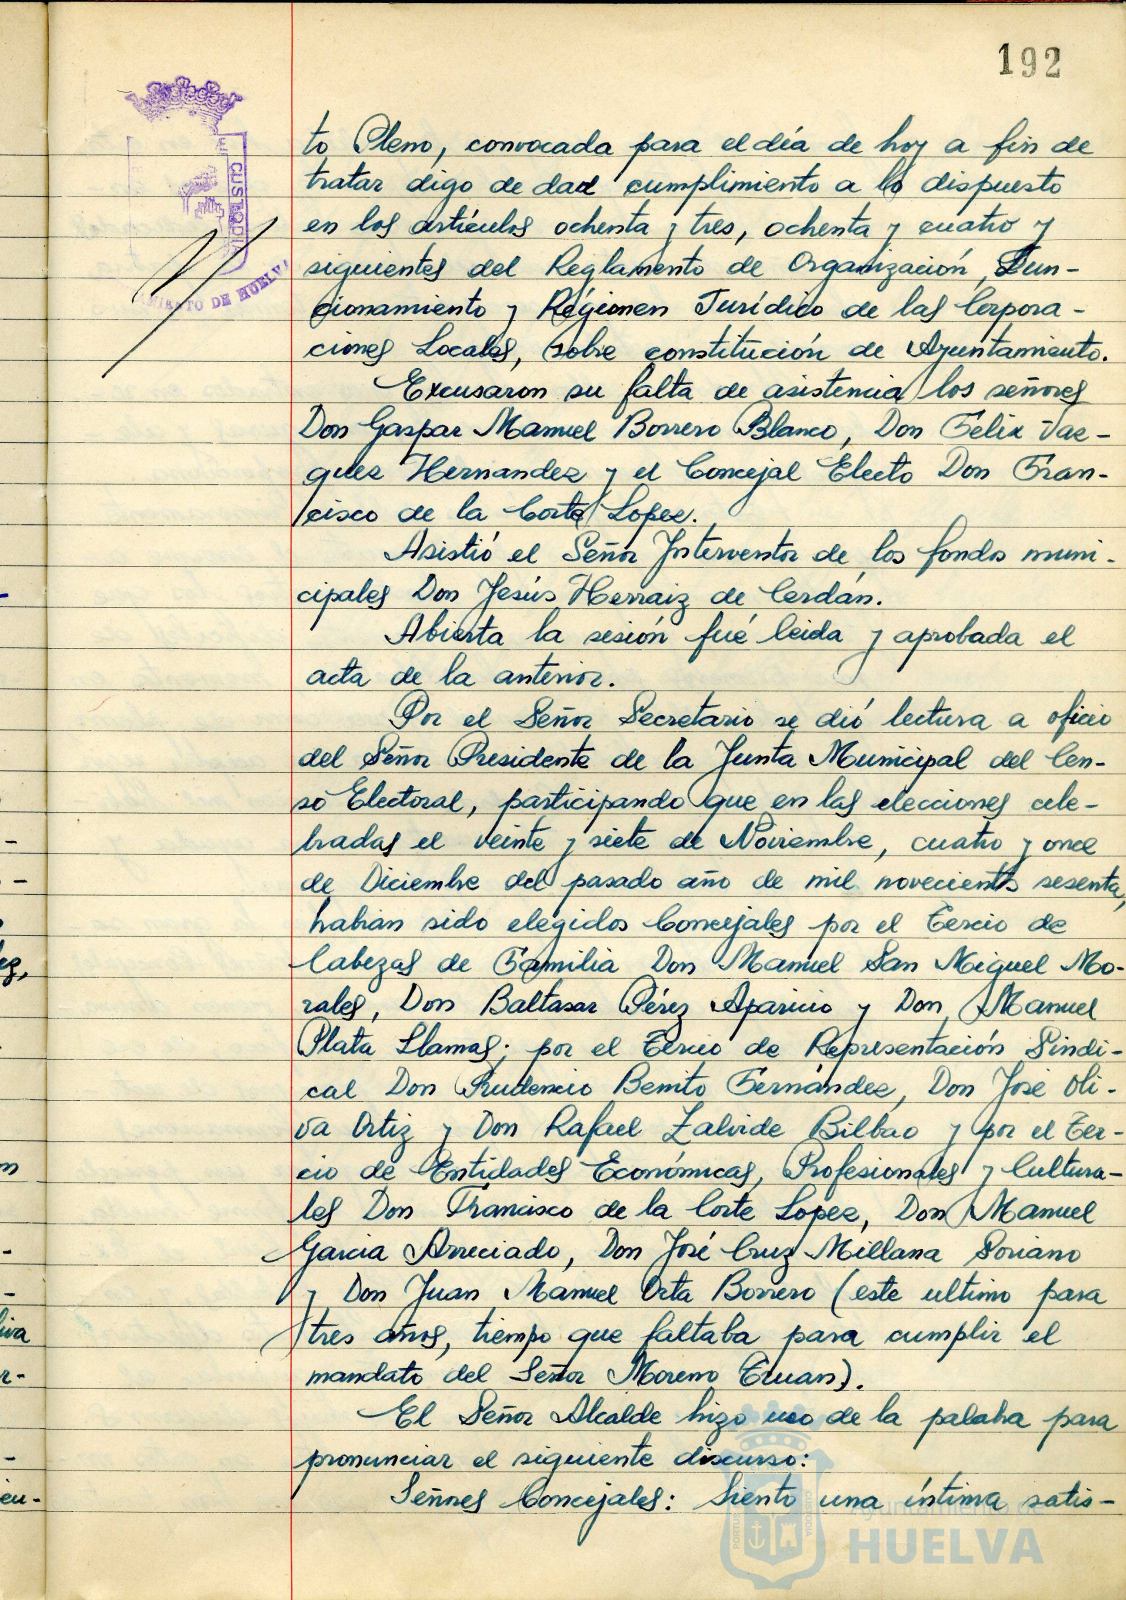 192
CUSTODIA
MIENTO DE HUELVA
to Pleno, convocada para el día de hoy a fin de
tratar digo de dad cumplimiento a lo dispuesto
en los artículos ochenta y tres, ochenta y cuatro y
siguientes del Reglamento de Organización, Fun-
cionamiento y Régionen Jurídico de las Corpora-
ciones Locales, sobre constitución de Ayuntamiento.
Excusaron su falta de asistencia los señores
Don Gaspar Manuel Borrero Blanco, Don Felix Vaz-
quez Hernandez y el Concejal Electo Don Fran-
cisco de la Corte Lopez.
Asistió el Señor Interventor de los fondos muni-
cipales Don Jesús Herraiz de Cerdán.
Abierta la sesión fué leida y aprobada el
acta de la anterior.
Por el Señor Secretario se dió lectura a oficio
del Señor Presidente de la Junta Municipal del Cen-
so Electoral, participando que en las elecciones cele-
bradas el veinte y siete de Noviembre, cuatro y once
de Diciembre del pasado año de mil novecientos sesenta,
habian sido elegidos Concejales por el Tercio de
Cabezas de Familia Don Manuel San Miguel Mo-
rales, Don Baltasar Pérez Aparicio y Don Manuel
Plata Llamas; por el Tercio de Representación Sindi-
cal Don Prudencio Benito Fernández, Don José Oli-
va Ortiz y Don Rafael Zalvide Bilbao y por el Ter-
cio de Entidades Económicas, Profesionales y Cultura-
les Don Francisco de la Corte Lopez, Don Manuel
Garcia Arreciado, Don José Cruz Millana Soriano
y Don Juan Manuel Orta Borrero (este ultimo para
tres años, tiempo que faltaba para cumplir el
mandato del Señor Moreno Truan).
El Señor Alcalde hizo uso de la palabra para
pronunciar el siguiente discurso:
Señores Concejales: Siento una íntima satis-
Ayuntamiento de
HUELVA